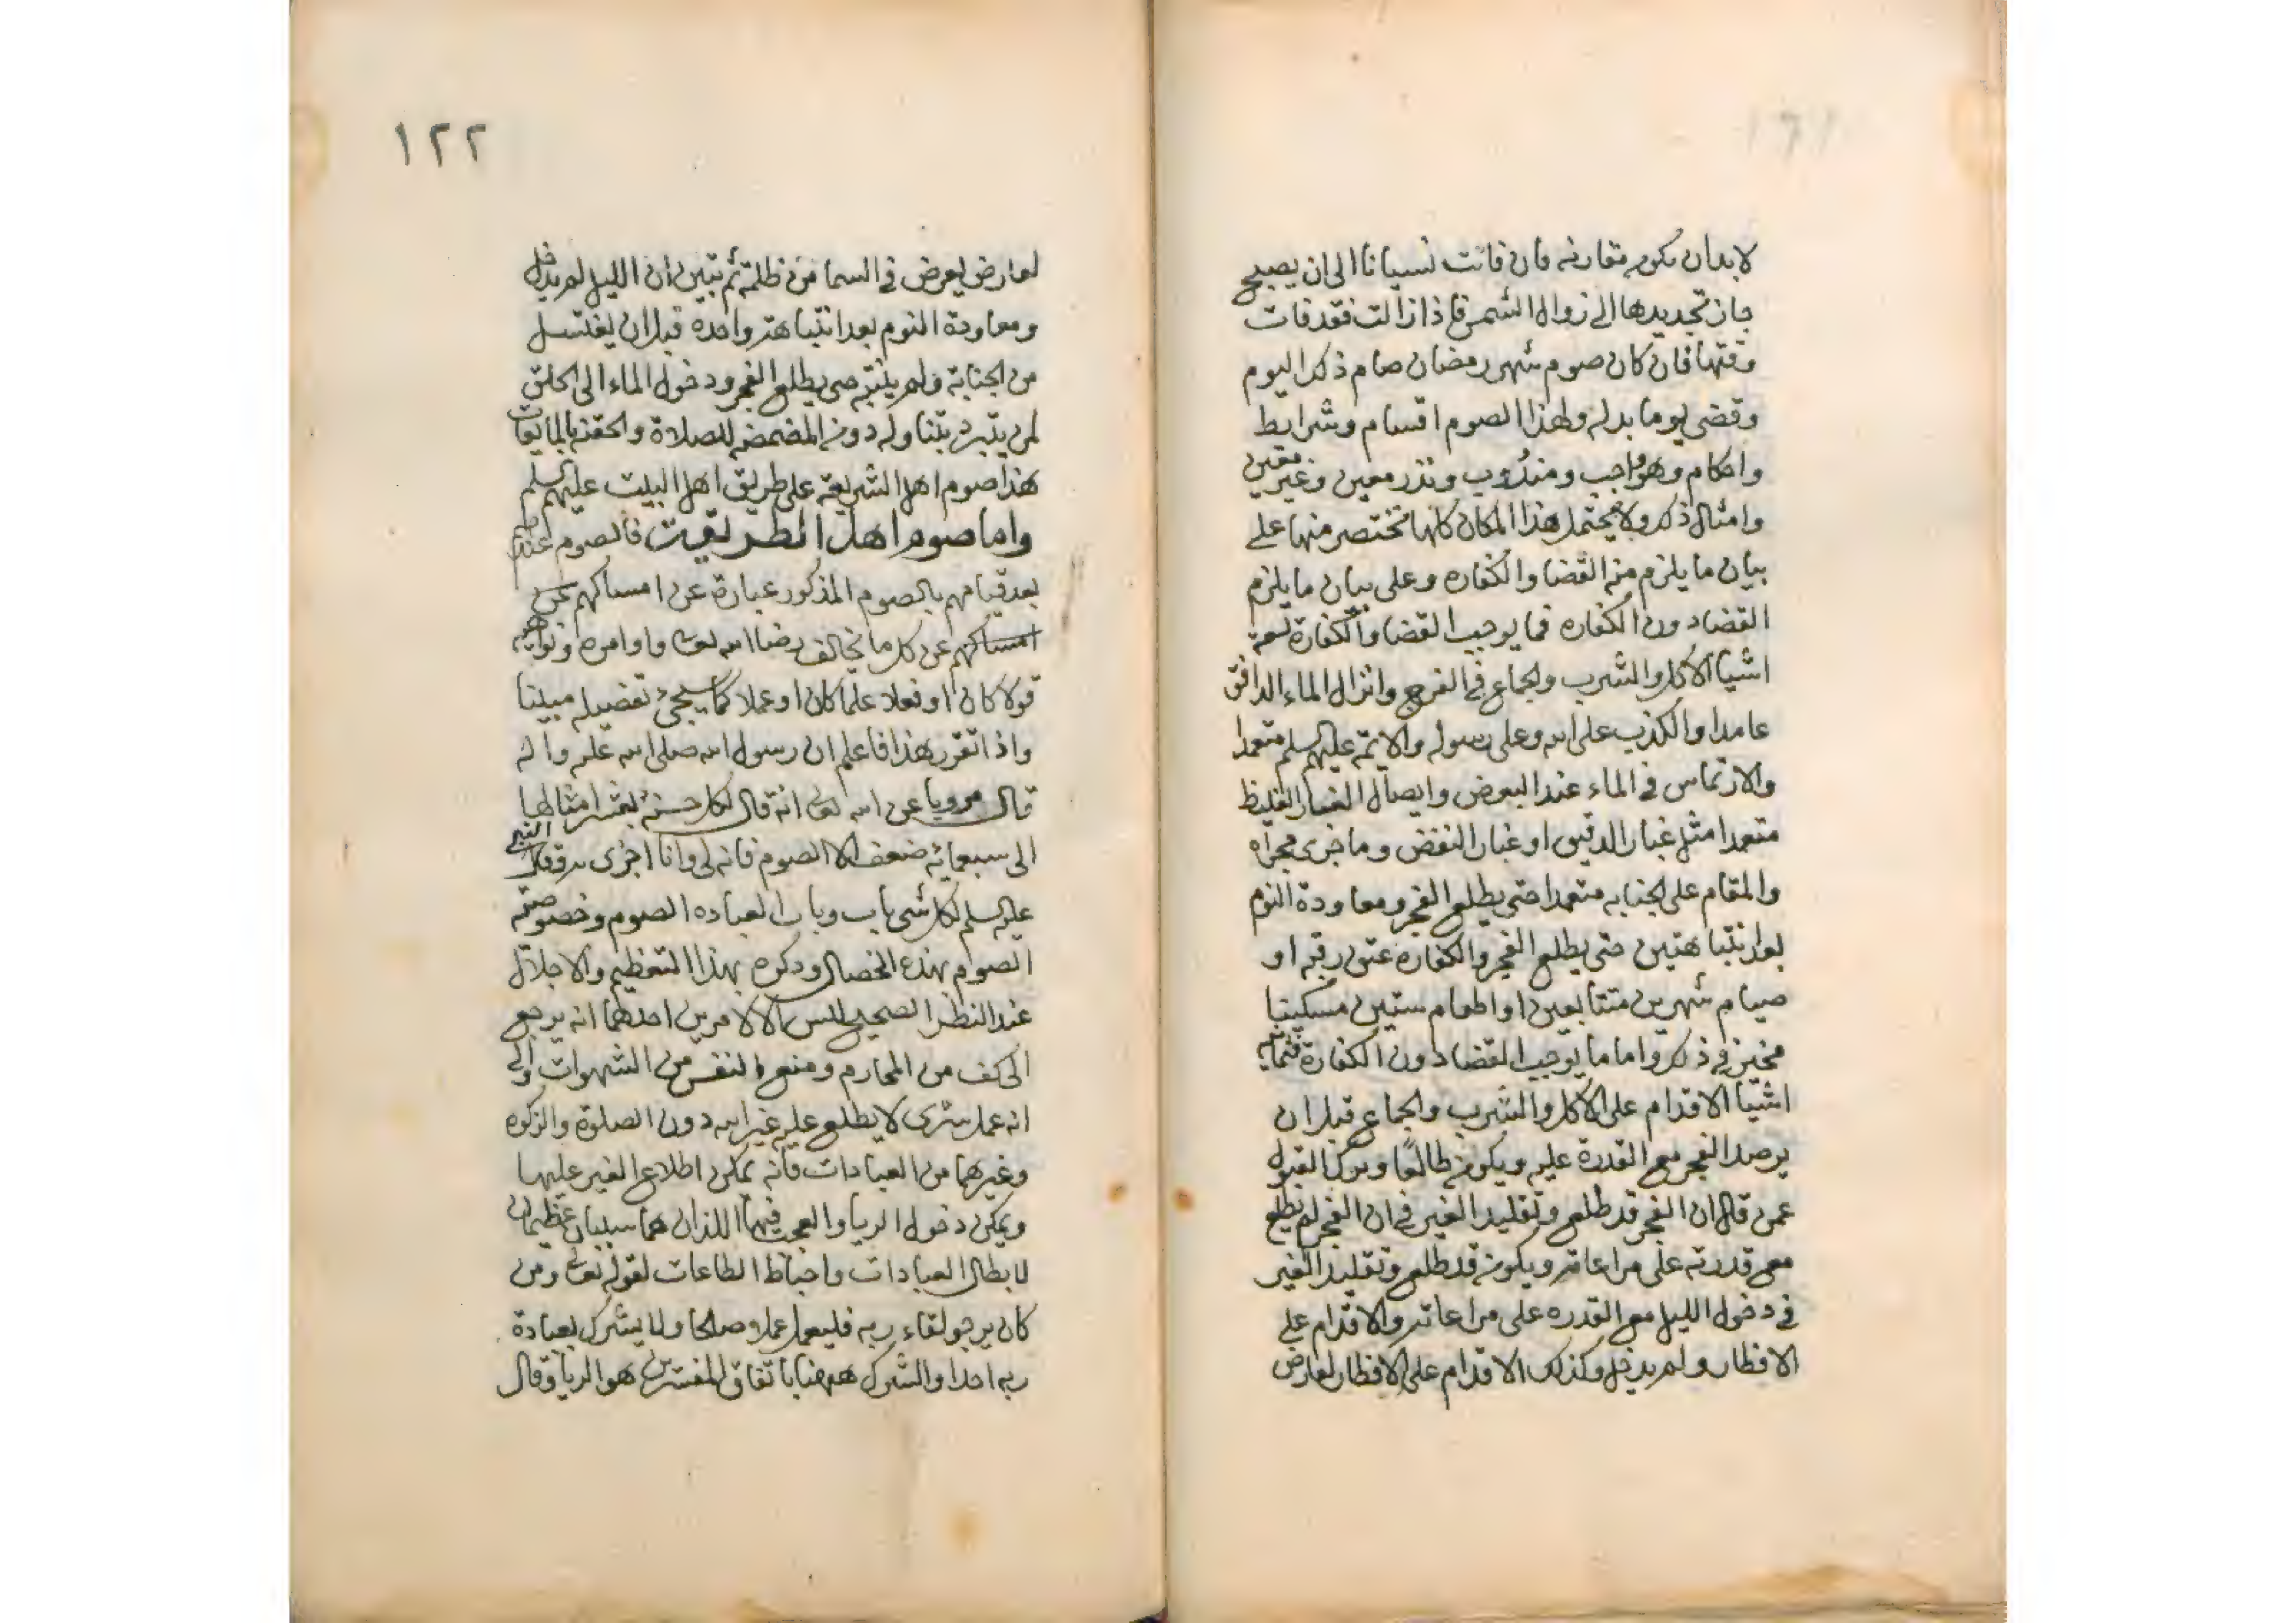 لابدان تكون مقارنه فان فاتت نسيانا الى ان يصبح
جاز تجديدها الى زوال الشمس فاذا زالت فقد فات
وقتها فان كان صوم شهر رمضان صام ذلك اليوم
وقضى يوما بدله ولهذا الصوم اقسام وشرايط
واحكام وهو واجب ومندوب ونذر معين وغير معين
وامثال ذلك ولا يحتمل هذا المكان كلها نختصر منها على
بيان ما يلزم منه القضا والكفاره وعلى بيان ما يلزم
القضا دون الكفاره فما يوجب القضا والكفارة تسعة
اشيا الاكل والشرب والجماع في الفرج وانزال الماء الدافق
عامدا والكذب على الله وعلى رسوله والائمة عليهم السلم متعمدا
والارتماس في الماء عند البعض وايصال الغبار الغليظ
متعمدا مثل غبار الدقيق او غبار النفض وما جرى مجراه
والمقام على الجنابه متعمدا حتى يطلع الفجر ومعاودة النوم
بعد انتباهتين حتى يطلع الفجر والكفاره عتق رقبه او
صيام شهرين متتابعين او اطعام ستين مسكينا
مخير في ذلك واما ما يوجب القضا دون الكفارة فثمانية
اشيا الاقدام على الاكل والشرب والجماع قبل ان
يرصد الفجر مع القدرة عليه ويكون طالعا وترك القبول
عمن قال ان الفجر قد طلع وتقليد الغير في ان الفجر لم يطلع
مع قدرته على مراعاته ويكون قد طلع وتقليد الغير
في دخول الليل مع القدره على مراعاته والاقدام على
الافطار ولم يدخل وكذلك الاقدام على الافطار لعارض
١٢٢
لعارض يعرض في السما من ظلمة ثم تبين ان الليل لم يدخل
ومعاودة النوم بعد انتباهة واحده قبل ان يغتسل
من الجنابة ولم ينتبه حتى يطلع الفجر ودخول الماء الى الحلق
لمن يتبرد بتناوله دون المضمضه للصلاة والحقنه بالمايعات
هذا صوم اهل الشريعة على طريق اهل البيت عليهم السلم
واما صوم اهل الطريقت فالصوم عندهم
بعد قيامهم بالصوم المذكور عبارة عن امساكهم عن
امساكهم عن كل ما يخالف رضا الله تعالى واوامره ونواهيه
قولا كان او فعلا علما كان او عملا كما سيجئ تفصيله مبينا
واذا تقرر هذا فاعلم ان رسول الله صلى الله عليه واله
قال مرويا عن الله تعالى انه قال لكل حسنة بعشر امثالها
الى سبعمائه ضعف الا الصوم فانه لي وانا اجزى به وقول النبي
عليه السلم لكل شى باب وباب العباده الصوم وخصوصية
الصوم بهذه الخصال وذكره بهذا التعظيم والاجلال
عند النظر الصحيح ليس الا لامرين احدهما انه يرجع
الى كف من المحارم ومنع النفس من الشهوات والى
انه عمل سرى لا يطلع عليه غير الله دون الصلوة والزكوه
وغيرهما من العبادات فانه يمكن اطلاع الغير عليها
ويمكن دخول الريا والعجب فيها اللذان هما سببان عظيمان
لابطال العبادات واحباط الطاعات لقوله تعالى ومن
كان يرجو لقاء ربه فليعمل عملا صالحا ولا يشرك بعبادة
ربه احدا والشرك ههنا باتفاق المفسرين هو الريا وقال